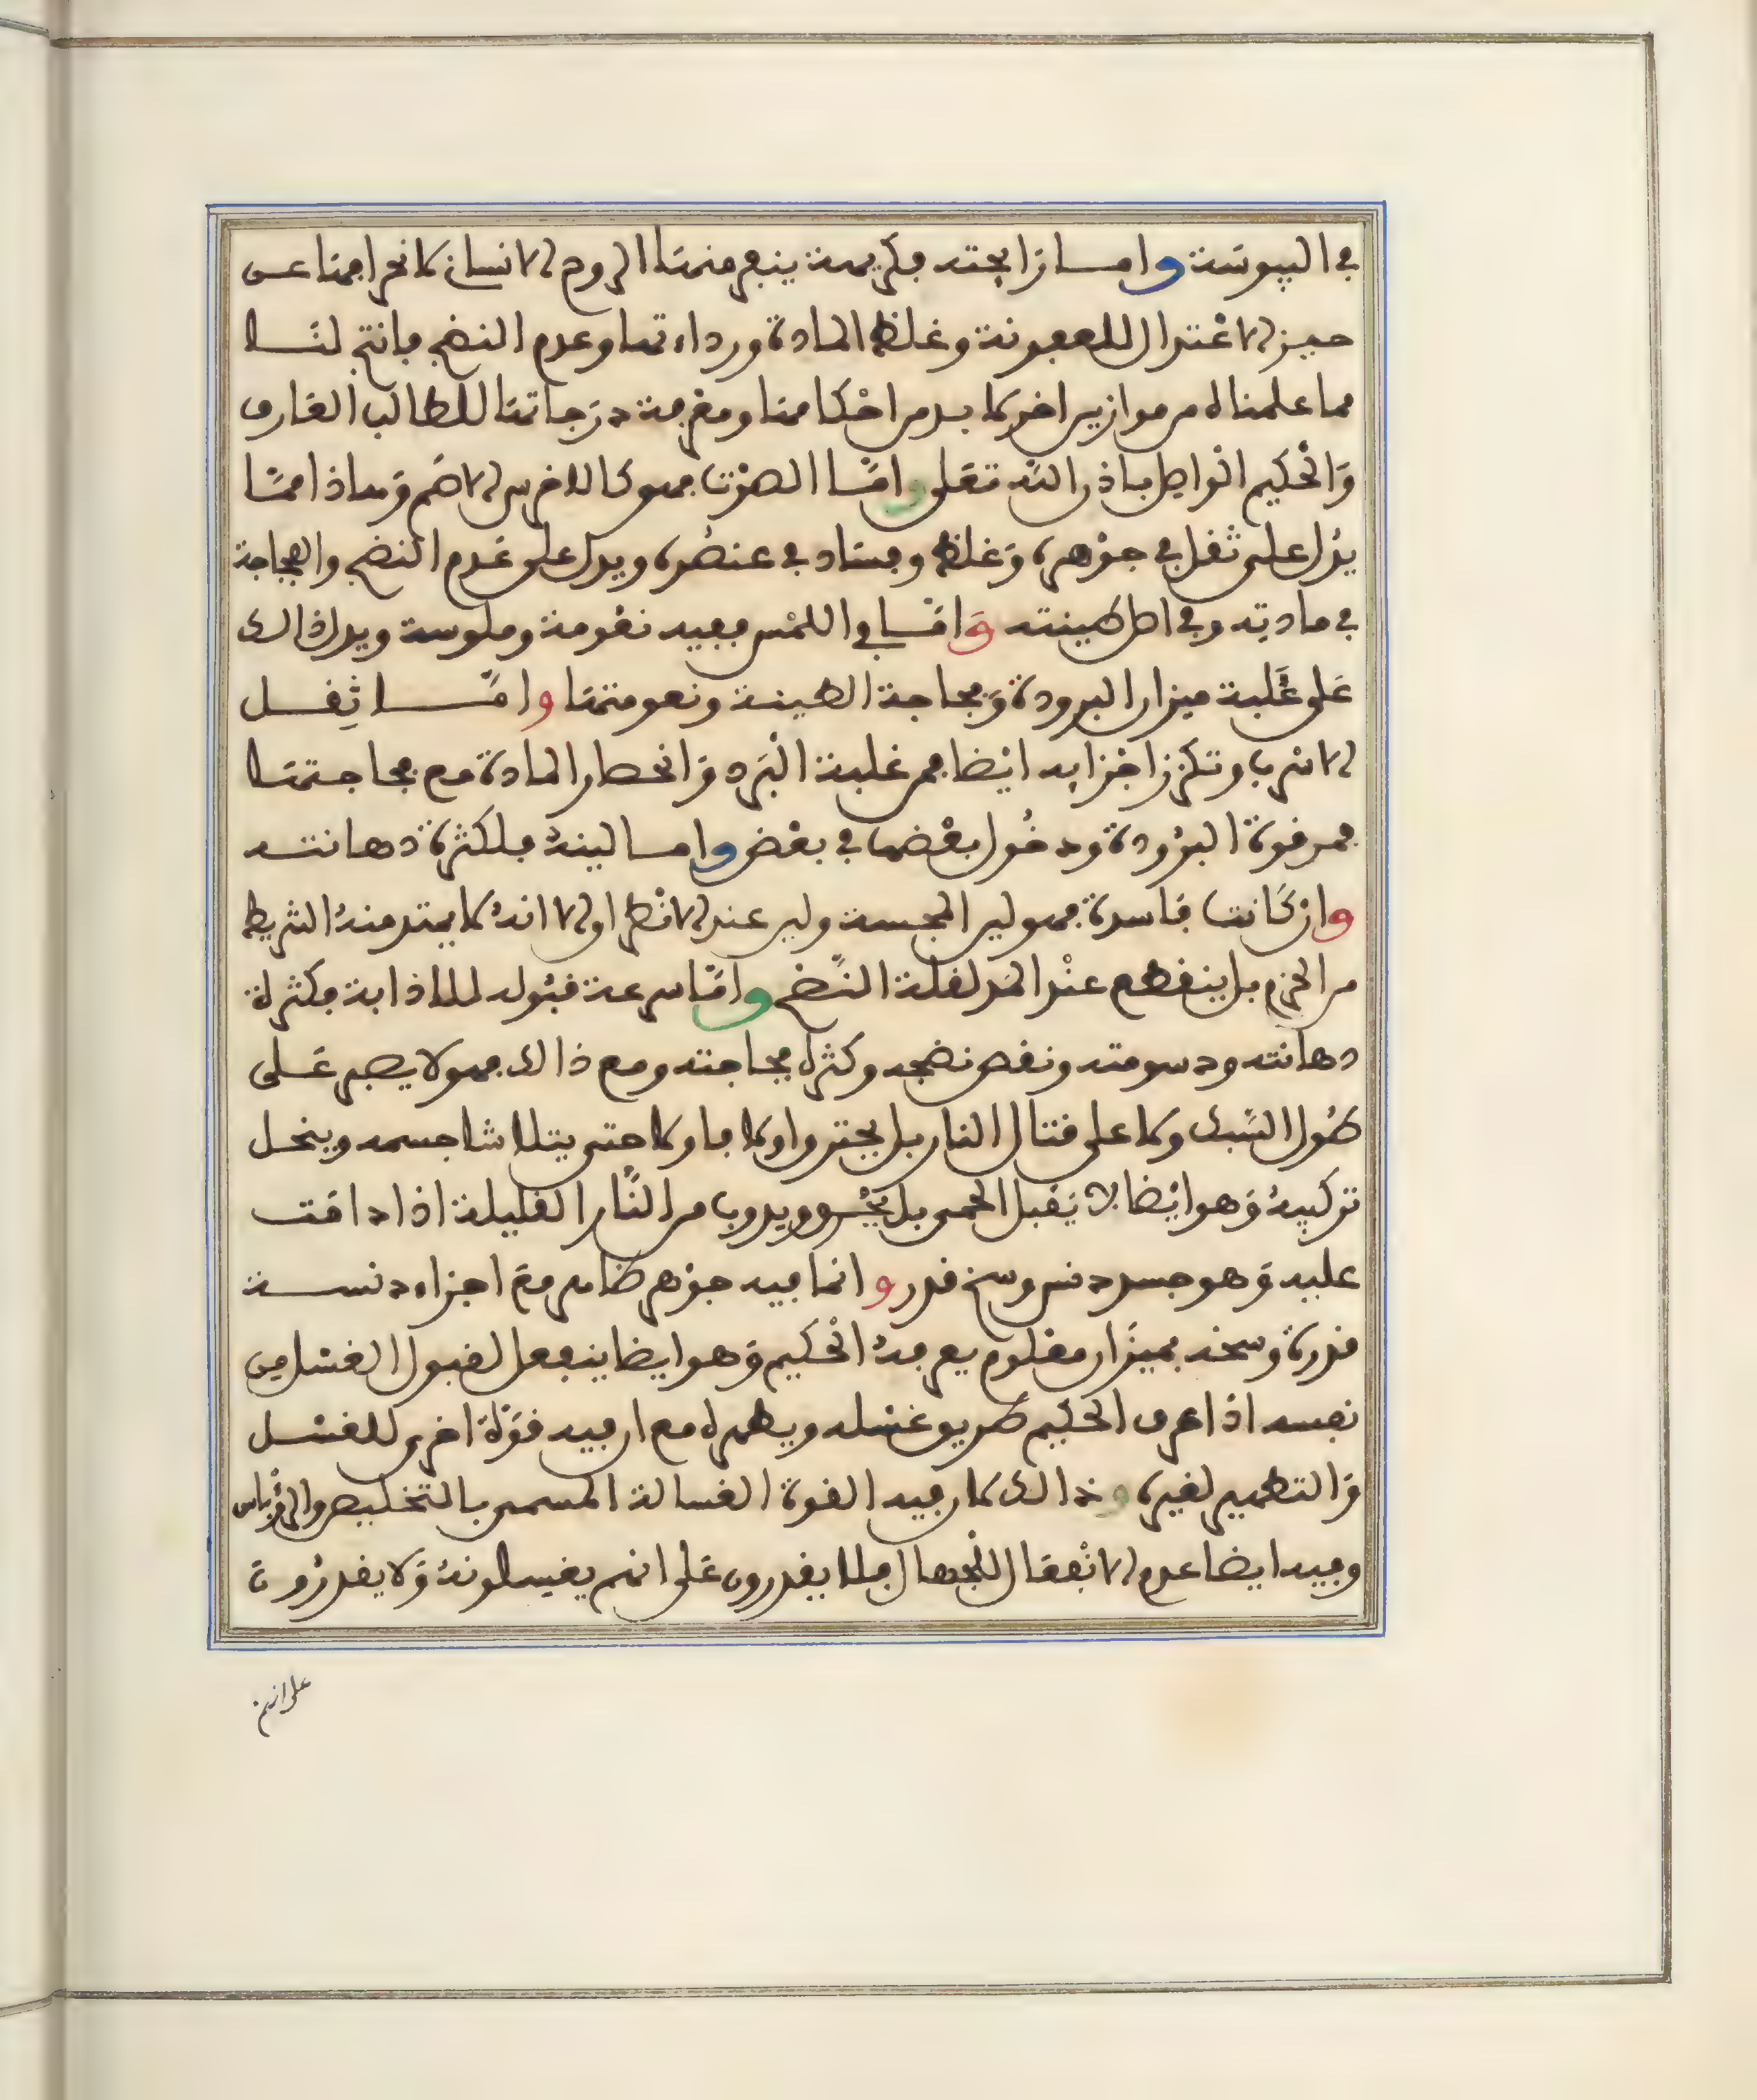 في اليبوسة واما رايحته فكريهة ينفر منها الروح الانسان لانحرافها عن
حيز الاعتدال للعفونة وغلظ المادة ورداءتها وعدم النضج فانتج لنا
مما علمناه من موازين اخر لا بد من احكامها ومعرفة درجاتها للطالب العارف
والحكيم الواصل باذن الله تعلى واما الصوت فهو كالاخرس الاصم وهذا مما
يدل على ثقل في جوهره وغلظ وفساد في عنصره ويدل على عدم النضج والفجاجة
في مادته وفي اصل طينته واما في اللمس ففيه نعومة وملوسة ويدل ذالك
على غلبة ميزان البرودة وفجاجة الطينة ونعومتها واما ثقل
الاسرب وتكرز اجزايه ايضا فمن غلبة البرد وانحصار المادة مع فجاجتها
فمن قوة البرودة ودخول بعضها في بعض واما لينه فلكثرة دهانته
وان كانت فاسدة فهو لين المجسة ولين عند الانطراق الا انه لا يمتد منه الشريط
من الخرم بل ينقطع عند المد لقلة النضج واما سرعة قبوله للاذابة فكثرة
دهانته ودسومته ونقص نضجه وكثرة فجاجته ومع ذالك فهو لا يصبر على
طول السبك ولا على قتال النار بل يحترق اولا فاولا حتى يتلاشا جسمه وينحل
تركيبه وهو ايضا لا يقبل الحمى بل يحترق ويدوب من النار القليلة اذا دامت
عليه وهو جسد دنس وسخ قدر وانما فيه جوهر طاهر مع اجزاء دنسة
قدرة وسخه بميزان معلوم يعرفه الحكيم وهو ايضا ينفعل لقبول الغسل من
نفسه اذا عرف الحكيم طريق غسله ويطهره مع ان فيه قوة اخرى للغسل
والتطهير لغيره وذالك لان فيه القوة الغسالة المسمى بالتخليص والروباس
وفيه ايضا عدم الانفعال للجهال فلا يقدرون على انهم يغيسلونه ولا يقدرون
على انهم